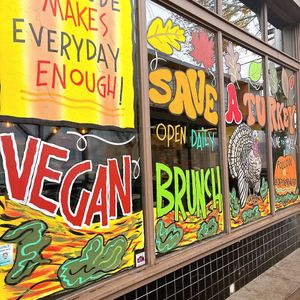 MAKES
EVERYDAY
ENOUGH!
VEGAN
SAVE
OPEN DAILY
BRUNCH
A TURKEY